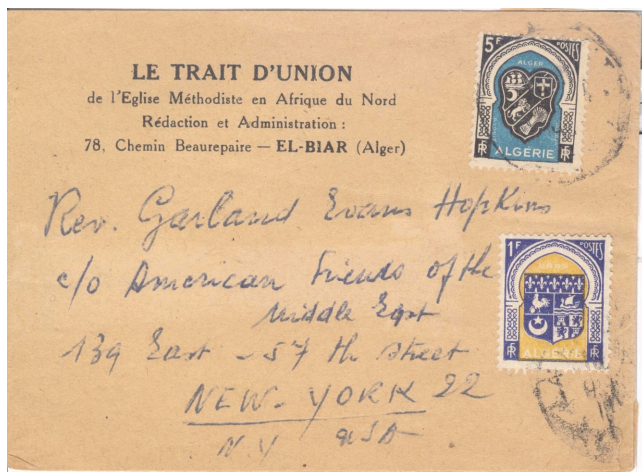 LE TRAIT D'UNION
de l'Eglise Méthodiste en Afrique du Nord
Rédaction et Administration :
78, Chemin Beaurepaire — EL-BIAR (Alger)
5F POSTES
ALGER
ALGÉRIE
RF RF
Rev. Garland Evans Hopkins
c/o American Friends of the
Middle East
139 East - 57 th Street
NEW-YORK 22
N.Y USA
1F POSTES
ORAN
ALGÉRIE
RF RF